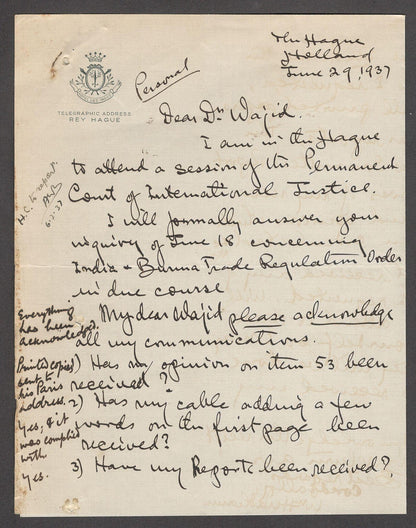 The Hague
Holland
June 29, 1937
Personal
TELEGRAPHIC ADDRESS
REY HAGUE
Dear Dr Wajid.
I am in the Hague
to attend a session of the Permanent
Court of International Justice.
I will formally answer your
inquiry of June 18 concerning
India & Burma Trade Regulation Order
in due course
My dear Wajid please acknowledge
all my communications.
1) Has my opinion on item 53 been
received?
2) Has my cable adding a few
words on the first page been
received?
3) Have my Reports been received?
Everything
has been
acknowledged.
Printed copies
sent to
his Paris
address.
Yes, & it
was complied
with
Yes.